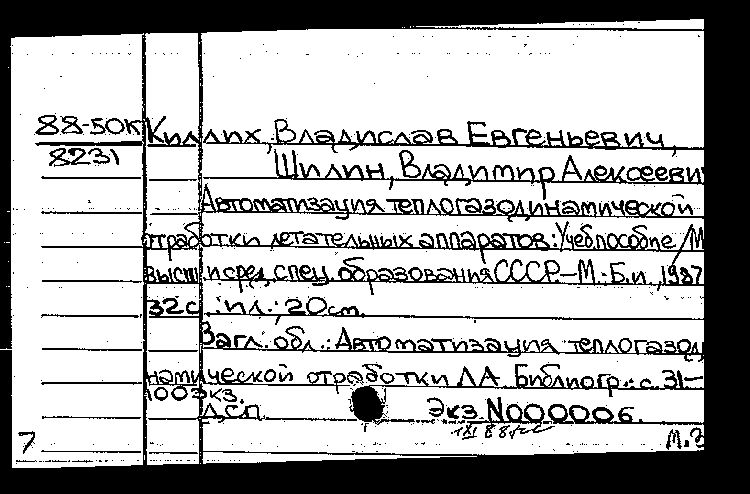 88-50К
8231
Киллих, Владислав Евгеньевич,
Шилин, Владимир Алексееви
Автоматизация теплогазодинамической
отработки летательных аппаратов: Учеб пособие / М
высш. и сред. спец. образования СССР. - М.: Б. и., 1987
32 с. : ил. ; 20 см.
Загл. обл.: Автоматизация теплогазод
намической отработки ЛА. Библиогр.: с. 31-
100 экз.
Д.С.П. Экз. N000006.
7 М.З